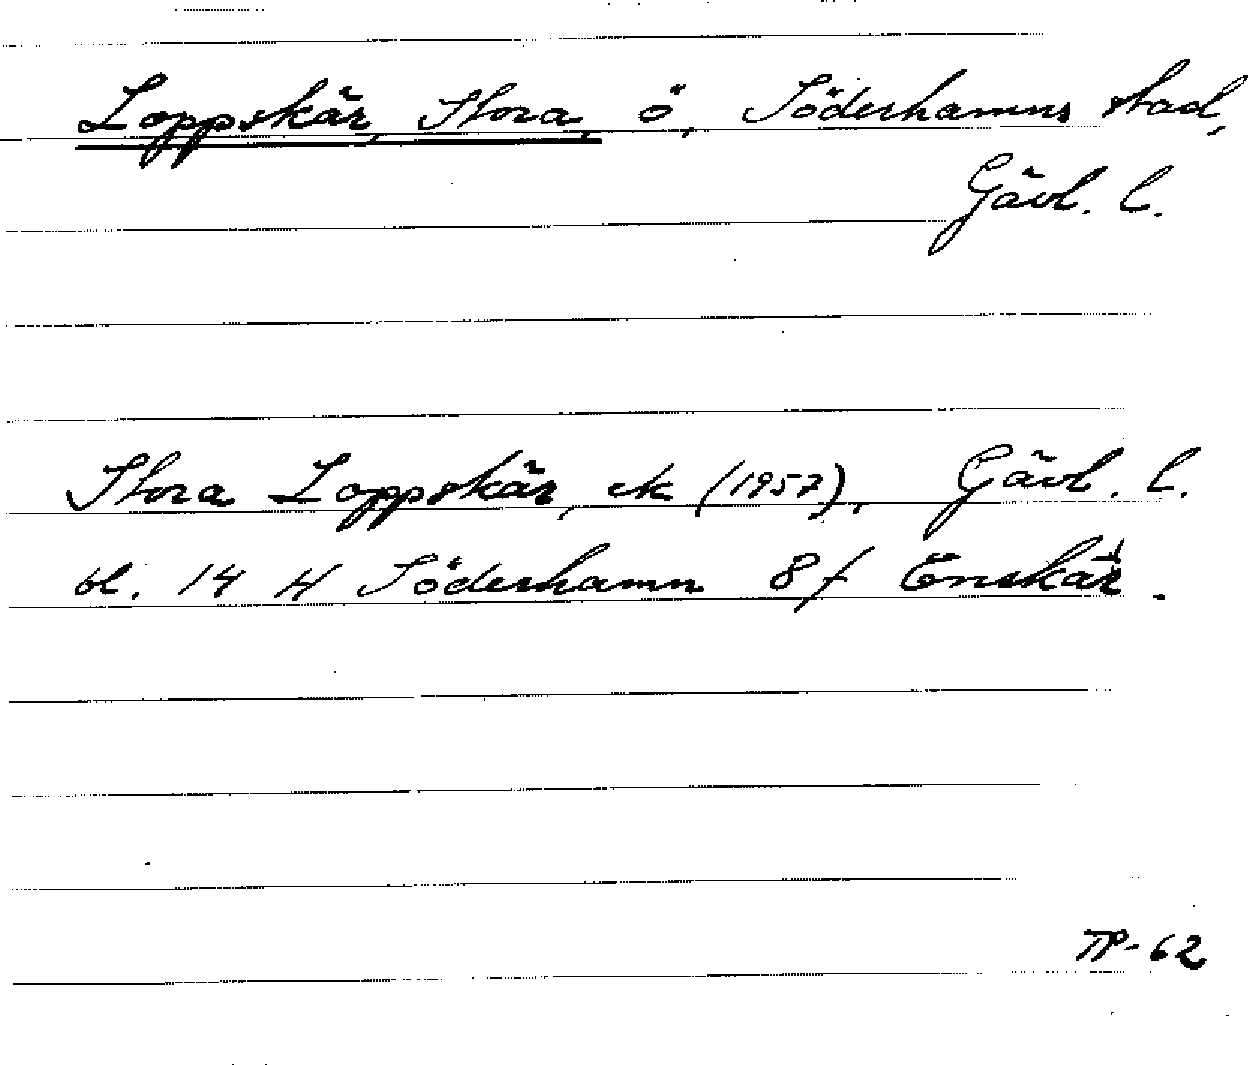 Loppskär, Stora, ö, Söderhamns stad,
Gävl. l.
Stora Loppskär, ek (1957), Gävl. l.
bl. 14 H Söderhamn 8 f Enskär.
TP-62